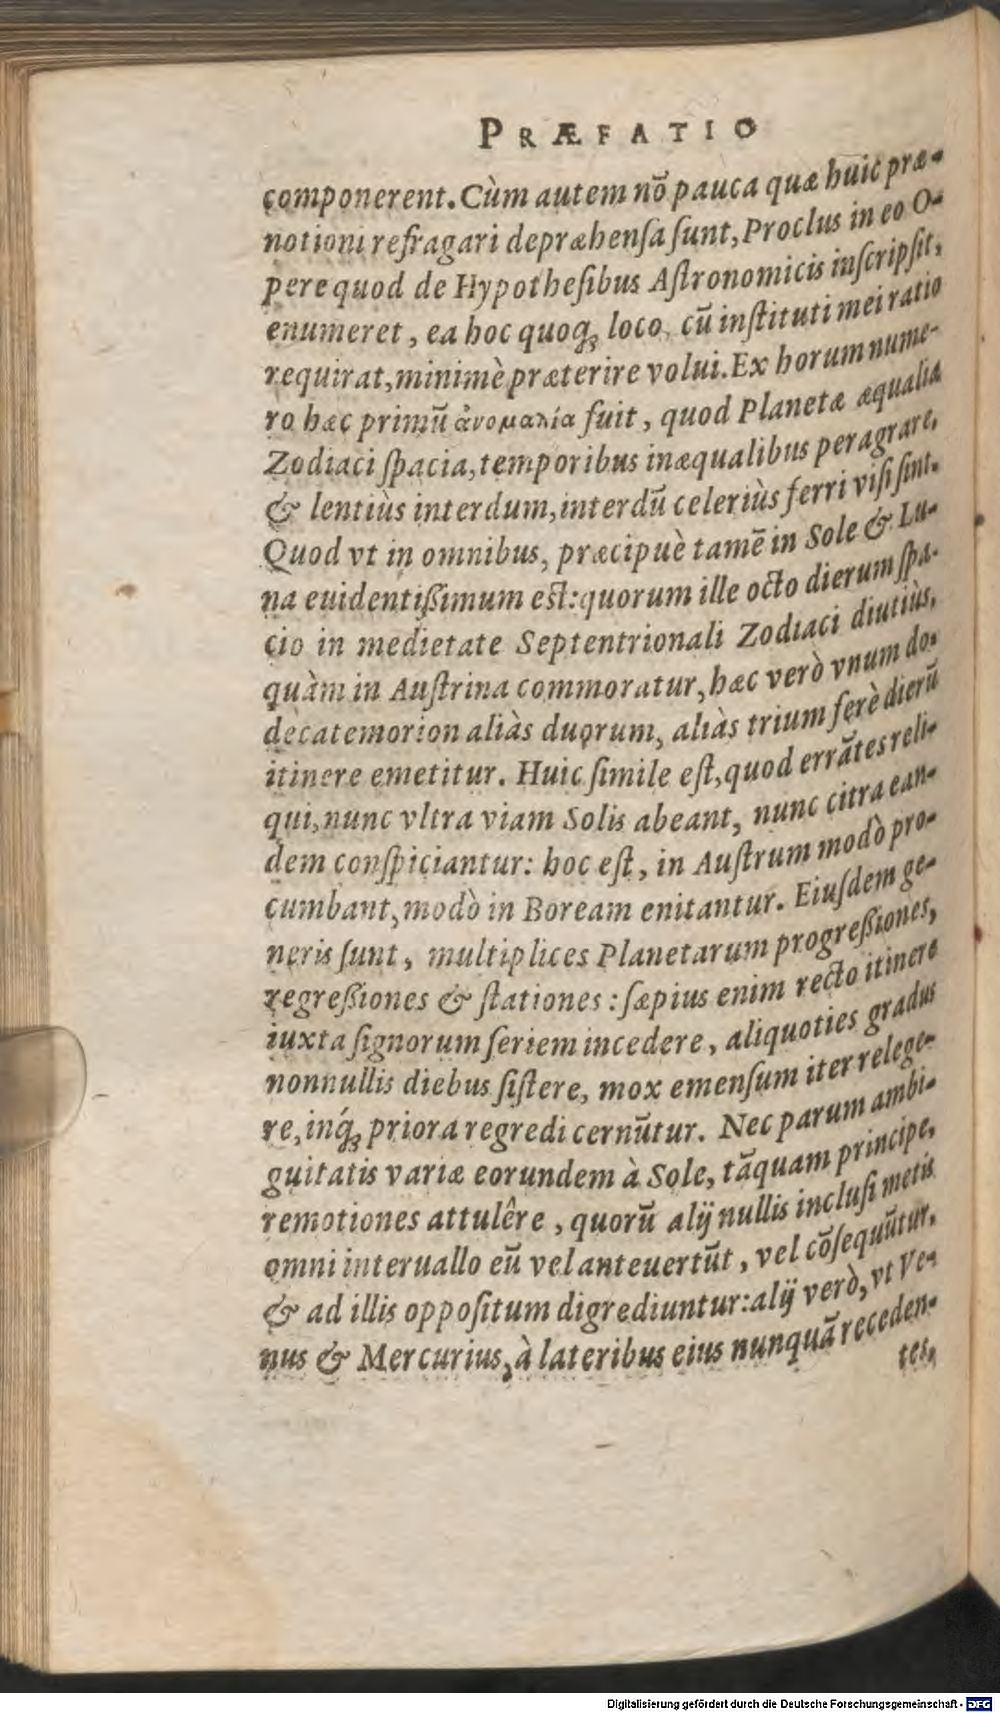 PRÆFATIO
componerent. Cùm autem nõ pauca quæ huic præ-
notioni refragari depræhenſa ſunt, Proclus in eo O-
pere quod de Hypotheſibus Aſtronomicis inſcripſit,
enumeret, ea hoc quoq; loco, cũ inſtituti mei ratio
requirat, minimè præterire volui. Ex horum nume-
ro hæc primũ ἀνομαλία fuit, quod Planetæ æqualia
Zodiaci ſpacia, temporibus inæqualibus peragrare,
& lentiùs interdum, interdũ celeriùs ferri viſi ſint.
Quod vt in omnibus, præcipuè tamẽ in Sole & Lu-
na euidentißimum est: quorum ille octo dierum ſpa-
cio in medietate Septentrionali Zodiaci diutiùs,
quàm in Auſtrina commoratur, hæc verò vnum do-
decatemorion aliàs duorum, aliàs trium ferè dierũ
itinere emetitur. Huic ſimile eſt, quod errãtes reli-
qui, nunc vltra viam Solis abeant, nunc citra ean-
dem conſpiciantur: hoc eſt, in Auſtrum modò pro-
cumbant, modò in Boream enitantur. Eiuſdem ge-
neris ſunt, multiplices Planetarum progreßiones,
regreßiones & ſtationes: ſæpius enim recto itinere
iuxta ſignorum ſeriem incedere, aliquoties gradus
nonnullis diebus ſiſtere, mox emenſum iter relege-
re, inq́; priora regredi cernũtur. Nec parum ambi-
guitatis variæ eorundem à Sole, tãquam principe,
remotiones attulêre, quorũ alij nullis incluſi metis
omni interuallo eũ vel anteuertũt, vel cõſequũtur,
& ad illis oppoſitum digrediuntur: alij verò, vt Ve-
nus & Mercurius, à lateribus eius nunquã receden-
tes,
Digitalisierung gefördert durch die Deutsche Forschungsgemeinschaft - DFG